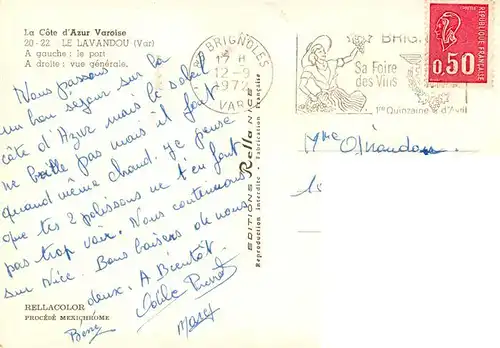 La Côte d'Azur Varoise
20-22 LE LAVANDOU (Var)
A gauche : le port
A droite : vue générale.
Nous passons
un bon sejour sur la
côte d'Azur mais le soleil
ne brille pas mais il fait
quand même chaud. Je pense
que tes 2 polissons ne t'en font
pas trop voir. Nous continuons
sur Nice. Bons baisers de nous
deux. A Bientôt.
RELLACOLOR
PROCÉDÉ MEXICHROME
EDITIONS Rella NICE
Reproduction Interdite - Fabrication Française
83 BRIGNOLES
17 H
12-9
VAR
BRIG
Sa Foire
des Vins
1re Quinzaine d'Avril
REPUBLIQUE FRANÇAISE
0,50
Mme